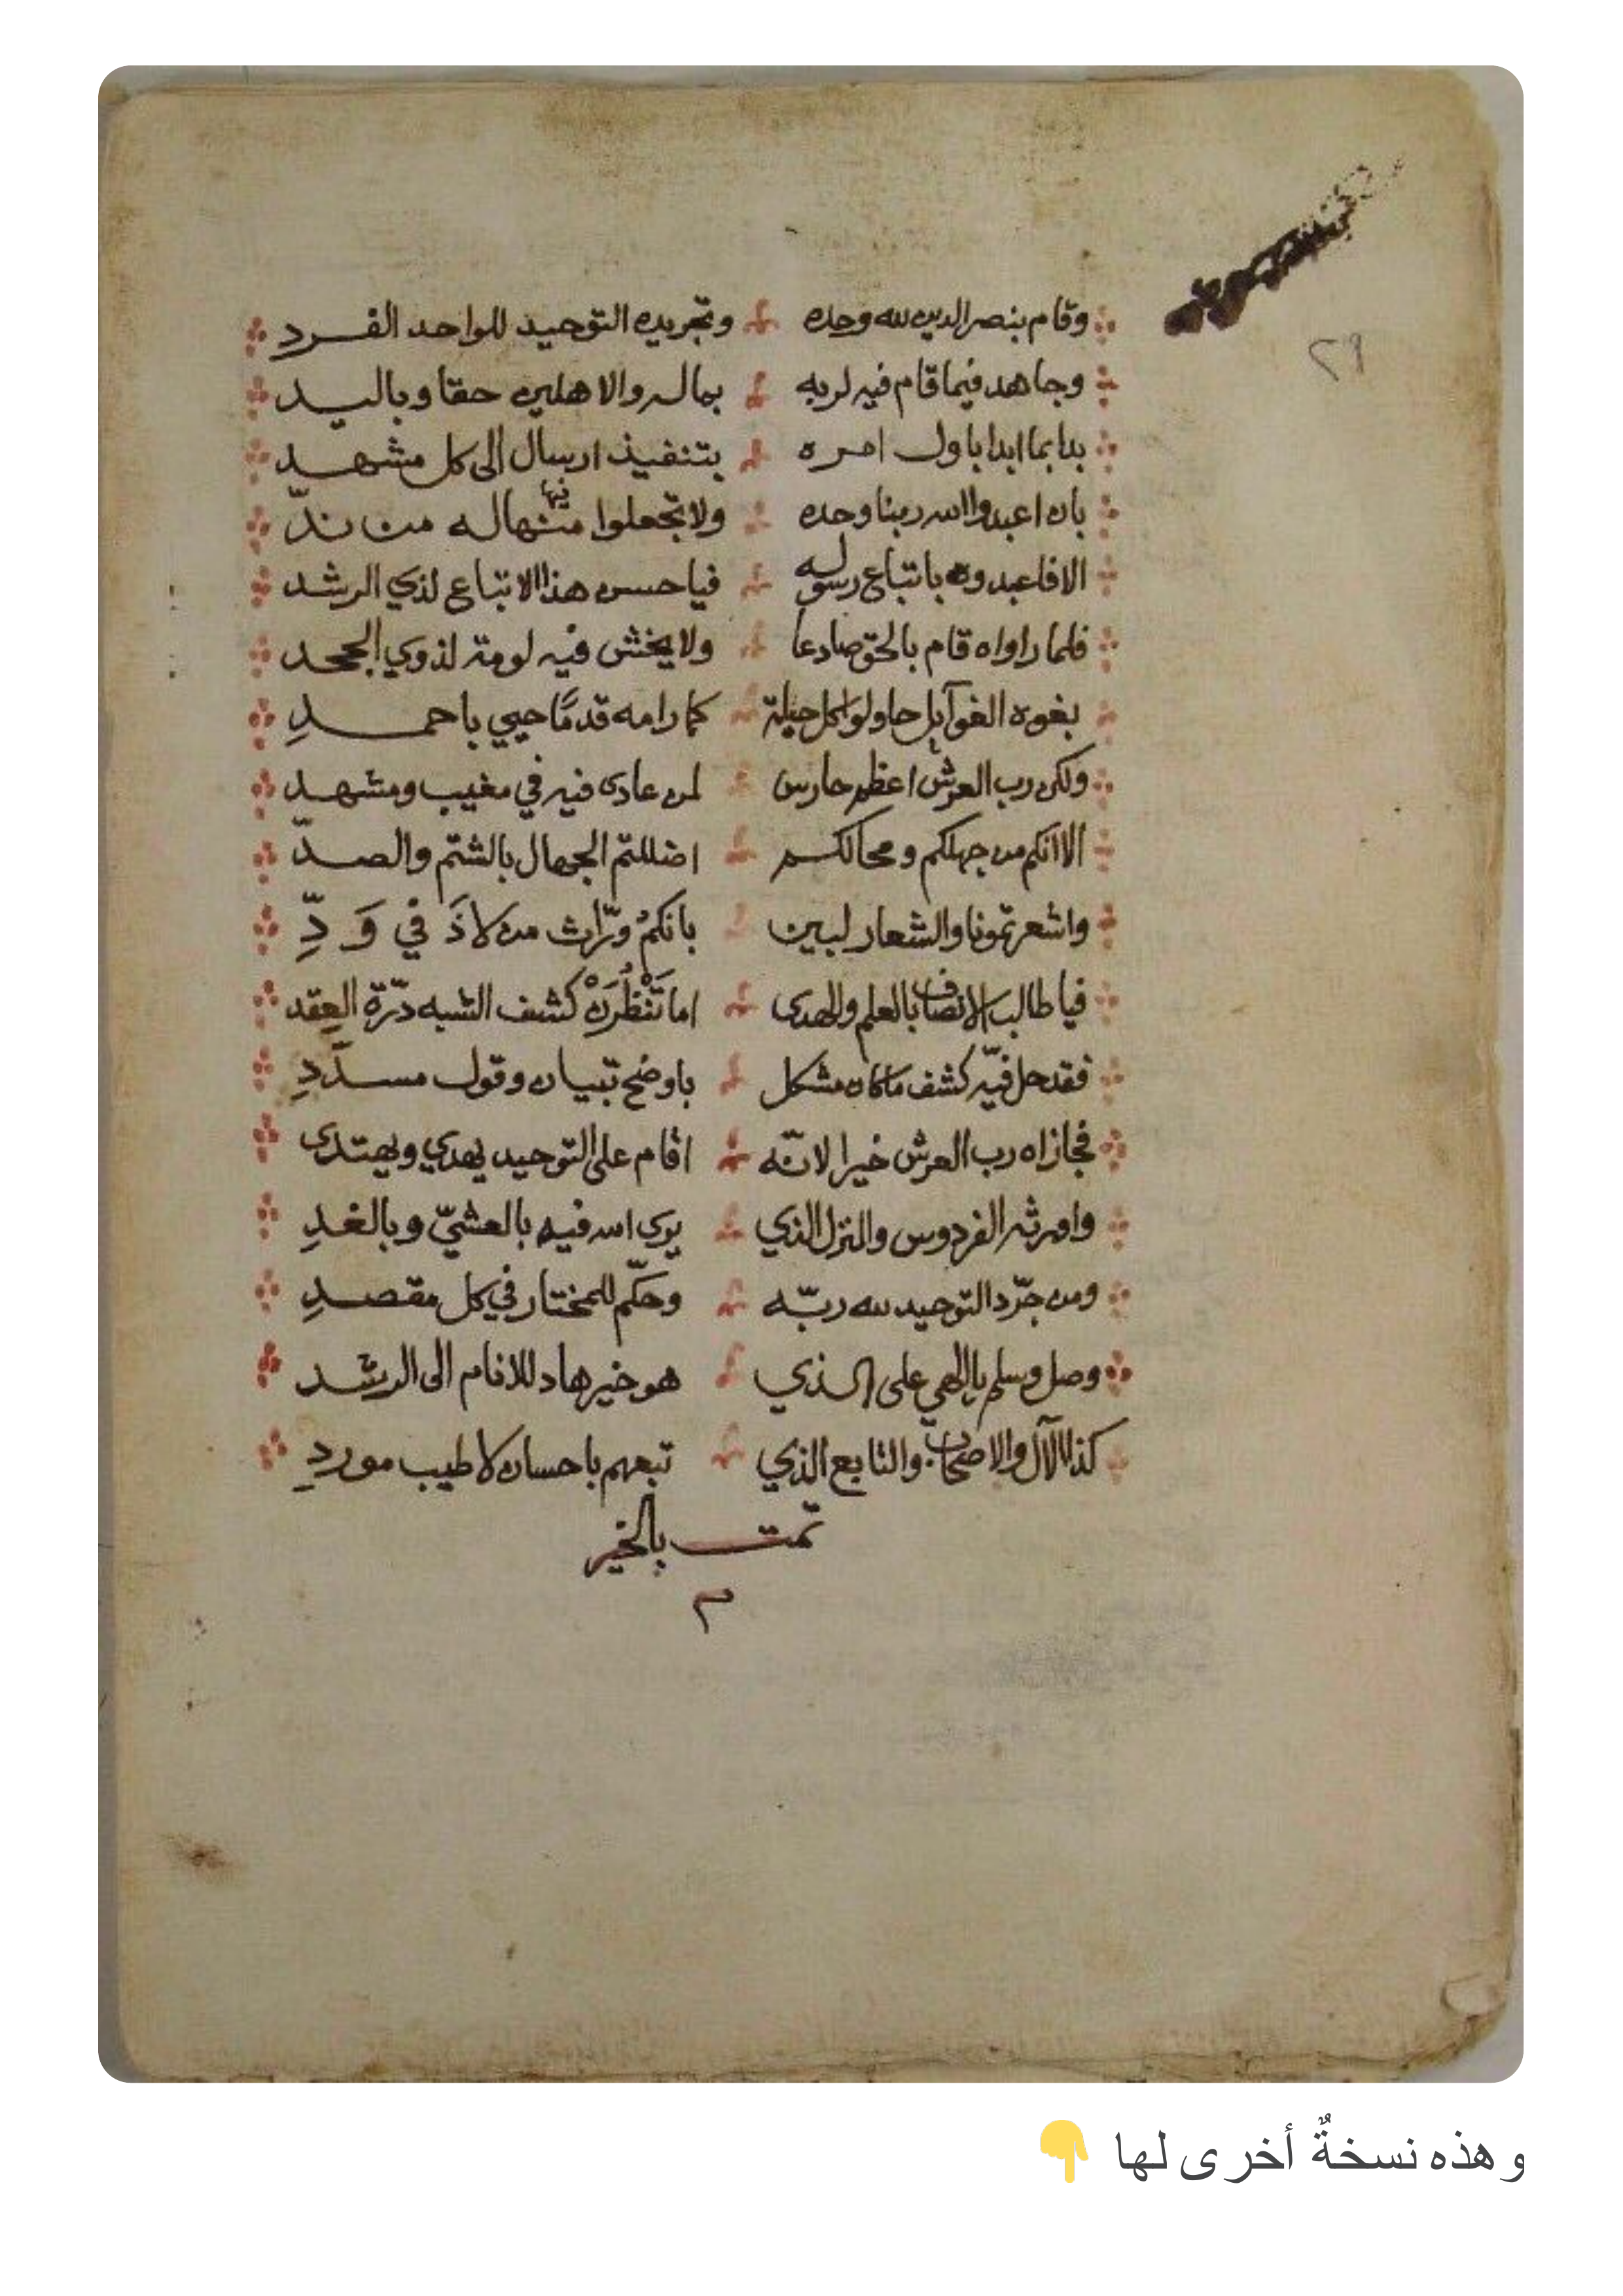 ٢٩
وقام بنصر الدين لله وحده وتجريده التوحيد للواحد الفرد
وجاهد فيما قام فيه لربه بماله والاهلين حقا وباليد
بدا بما ابدا باول امره بتنفيذ ارسال الى كل مشهد
بان اعبدوا الله ربنا وحده ولا تجعلوا منها له من ندّ
الا فاعبدوه باتباع رسوله فيا حسن هذا الاتباع لذي الرشد
فلما راواه قام بالحق صادعا ولا يخش فيه لومة لذوي الجحد
بغوه الغوآيل حاولوا كل حيلة كما رامه قدمًا حيي باحمدِ
ولكن رب العرش اعظم حارس لمن عادى فيه في مغيب ومشهد
الا انكم من جهلكم ومحالكم اضللتم الجهال بالشتم والصدّ
واشعرتمونا والشعار لبين بانكمُ ورّاث من لاذَ في وَدِّ
فيا طالب الانصاف بالعلم والهدى اما تَنْظُرَنْ كشف الشبه درّة العِقد
فقد حل فيّه كشف ما كان مشكل باوضح تبيان وقول مسدّدِ
فجازاه رب العرش خيرا لانّه اقام على التوحيد يهدي ويهتدى
واورثه الفردوس والنزل الذي يرى الله فيه بالعشيّ وبالغدِ
ومن جرّد التوحيد لله ربّه وحكّم للمختار في كل مقصدِ
وصل وسلم يا الهي على الذي هو خير هاد للانام الى الرشد
كذا الآل والاصحاب والتابع الذي تبعهم باحسان لاطيب موردِ
تمت بالخير
م
وهذه نسخةٌ أخرى لها 👇